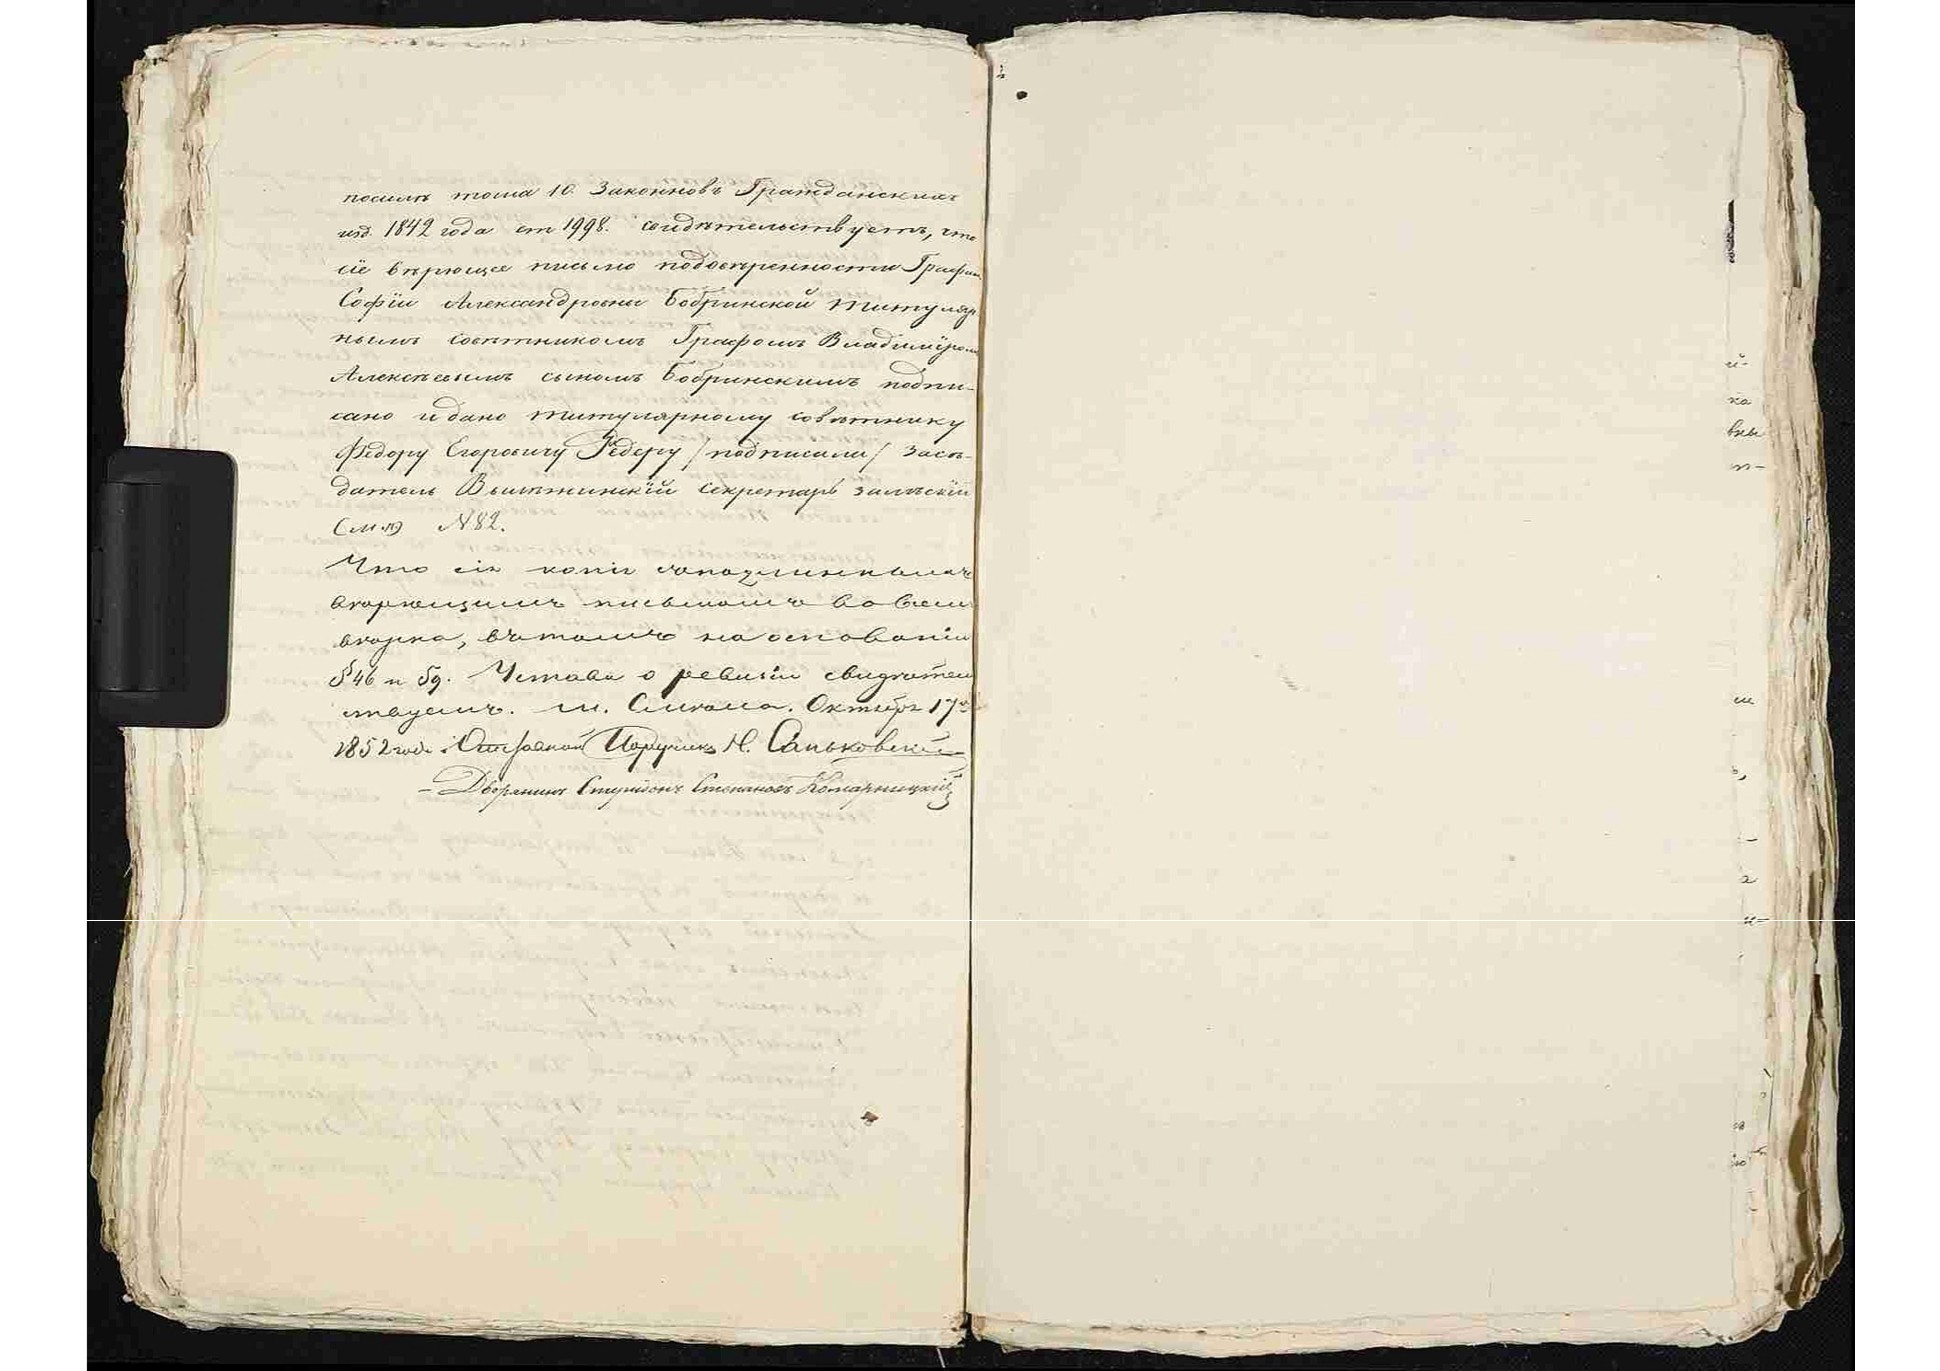 тома 10. Законновъ Гражданскихъ
изд. 1842 года ст 1998. свидѣтельствуетъ, что
сіе вѣрющее письмо подовѣренности Графини
Софіи Александровны Бобринской титуляр
нымъ совѣтникомъ Графомъ Владиміромъ
Алексѣевымъ сыномъ Бобринскимъ подпи-
сано и дано титулярному совѣтнику
Федору Егоровичу Редеру /подписали/ Засѣ-
датель секретарь
№ 82.
Что сія копія
вѣрющимъ письмомъ во всемъ
вѣрна, въ томъ на основаніи
§ 46 и 59. Устава о ревизіи свидѣтель
ствуемъ. м. Смѣла. Октября 17
1852 года Отставной Поручикъ Н. Саньковскій
Дворянинъ Степановъ Комарницкій